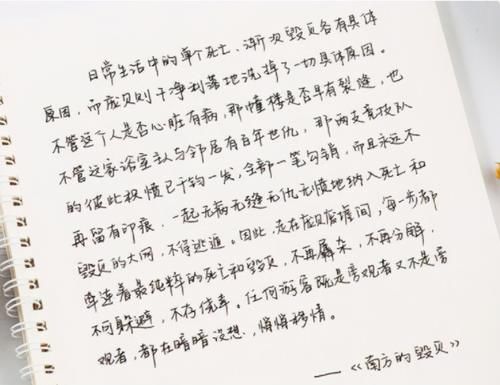 日常生活中的单个死亡、渐次毁灭各有具体
原因，而庞贝则干净利落地洗掉了一切具体原因。
不管这个人是否心脏有病，那幢楼是否早有裂缝，也
不管这家浴室主人与邻居有百年世仇，那两支竞技队
的彼此积愤已千钧一发，全部一笔勾销，而且永不
再留有印痕，一起无病无缝无仇无愤地纳入死亡和
毁灭的大网，不得逃遁。因此，走在庞贝废墟间，每一步都
牵连着最纯粹的死亡和毁灭，不再羼杂，不再分解，
不可躲避，不存侥幸。任何游客既是旁观者又不是旁
观者，都在暗暗设想，悄悄移情。
——《南方的毁灭》